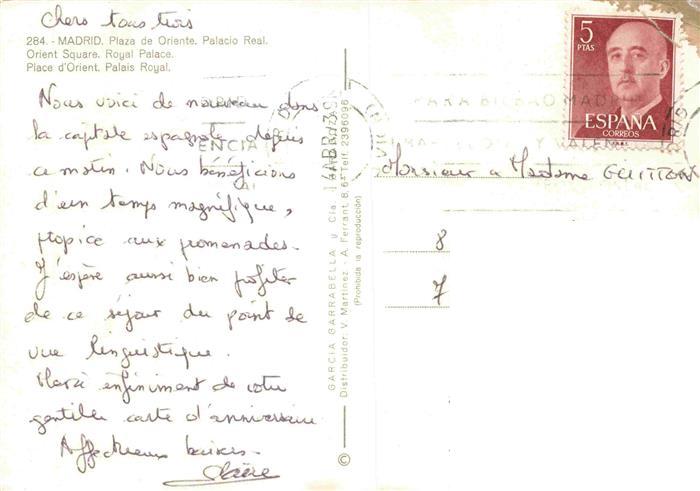 Chers tous trois
284. - MADRID. Plaza de Oriente. Palacio Real.
Orient Square. Royal Palace.
Place d'Orient. Palais Royal.
Nous voici de nouveau dans
la capitale espagnole depuis
ce matin. Nous bénéficions
d'un temps magnifique,
propice aux promenades.
J'espère aussi bien profiter
de ce séjour du point de
vue linguistique.
Merci infiniment de votre
gentille carte d'anniversaire
Affectueux baisers.
Claire
GARCIA GARRABELLA y Cía.
Distribuidor: V. Martínez - A. Ferrant, 8, 6ª Telf. 2396096
(Prohibida la reproducción)
©
5
PTAS
ESPAÑA
CORREOS
Monsieur & Madame GUITTON
8
7